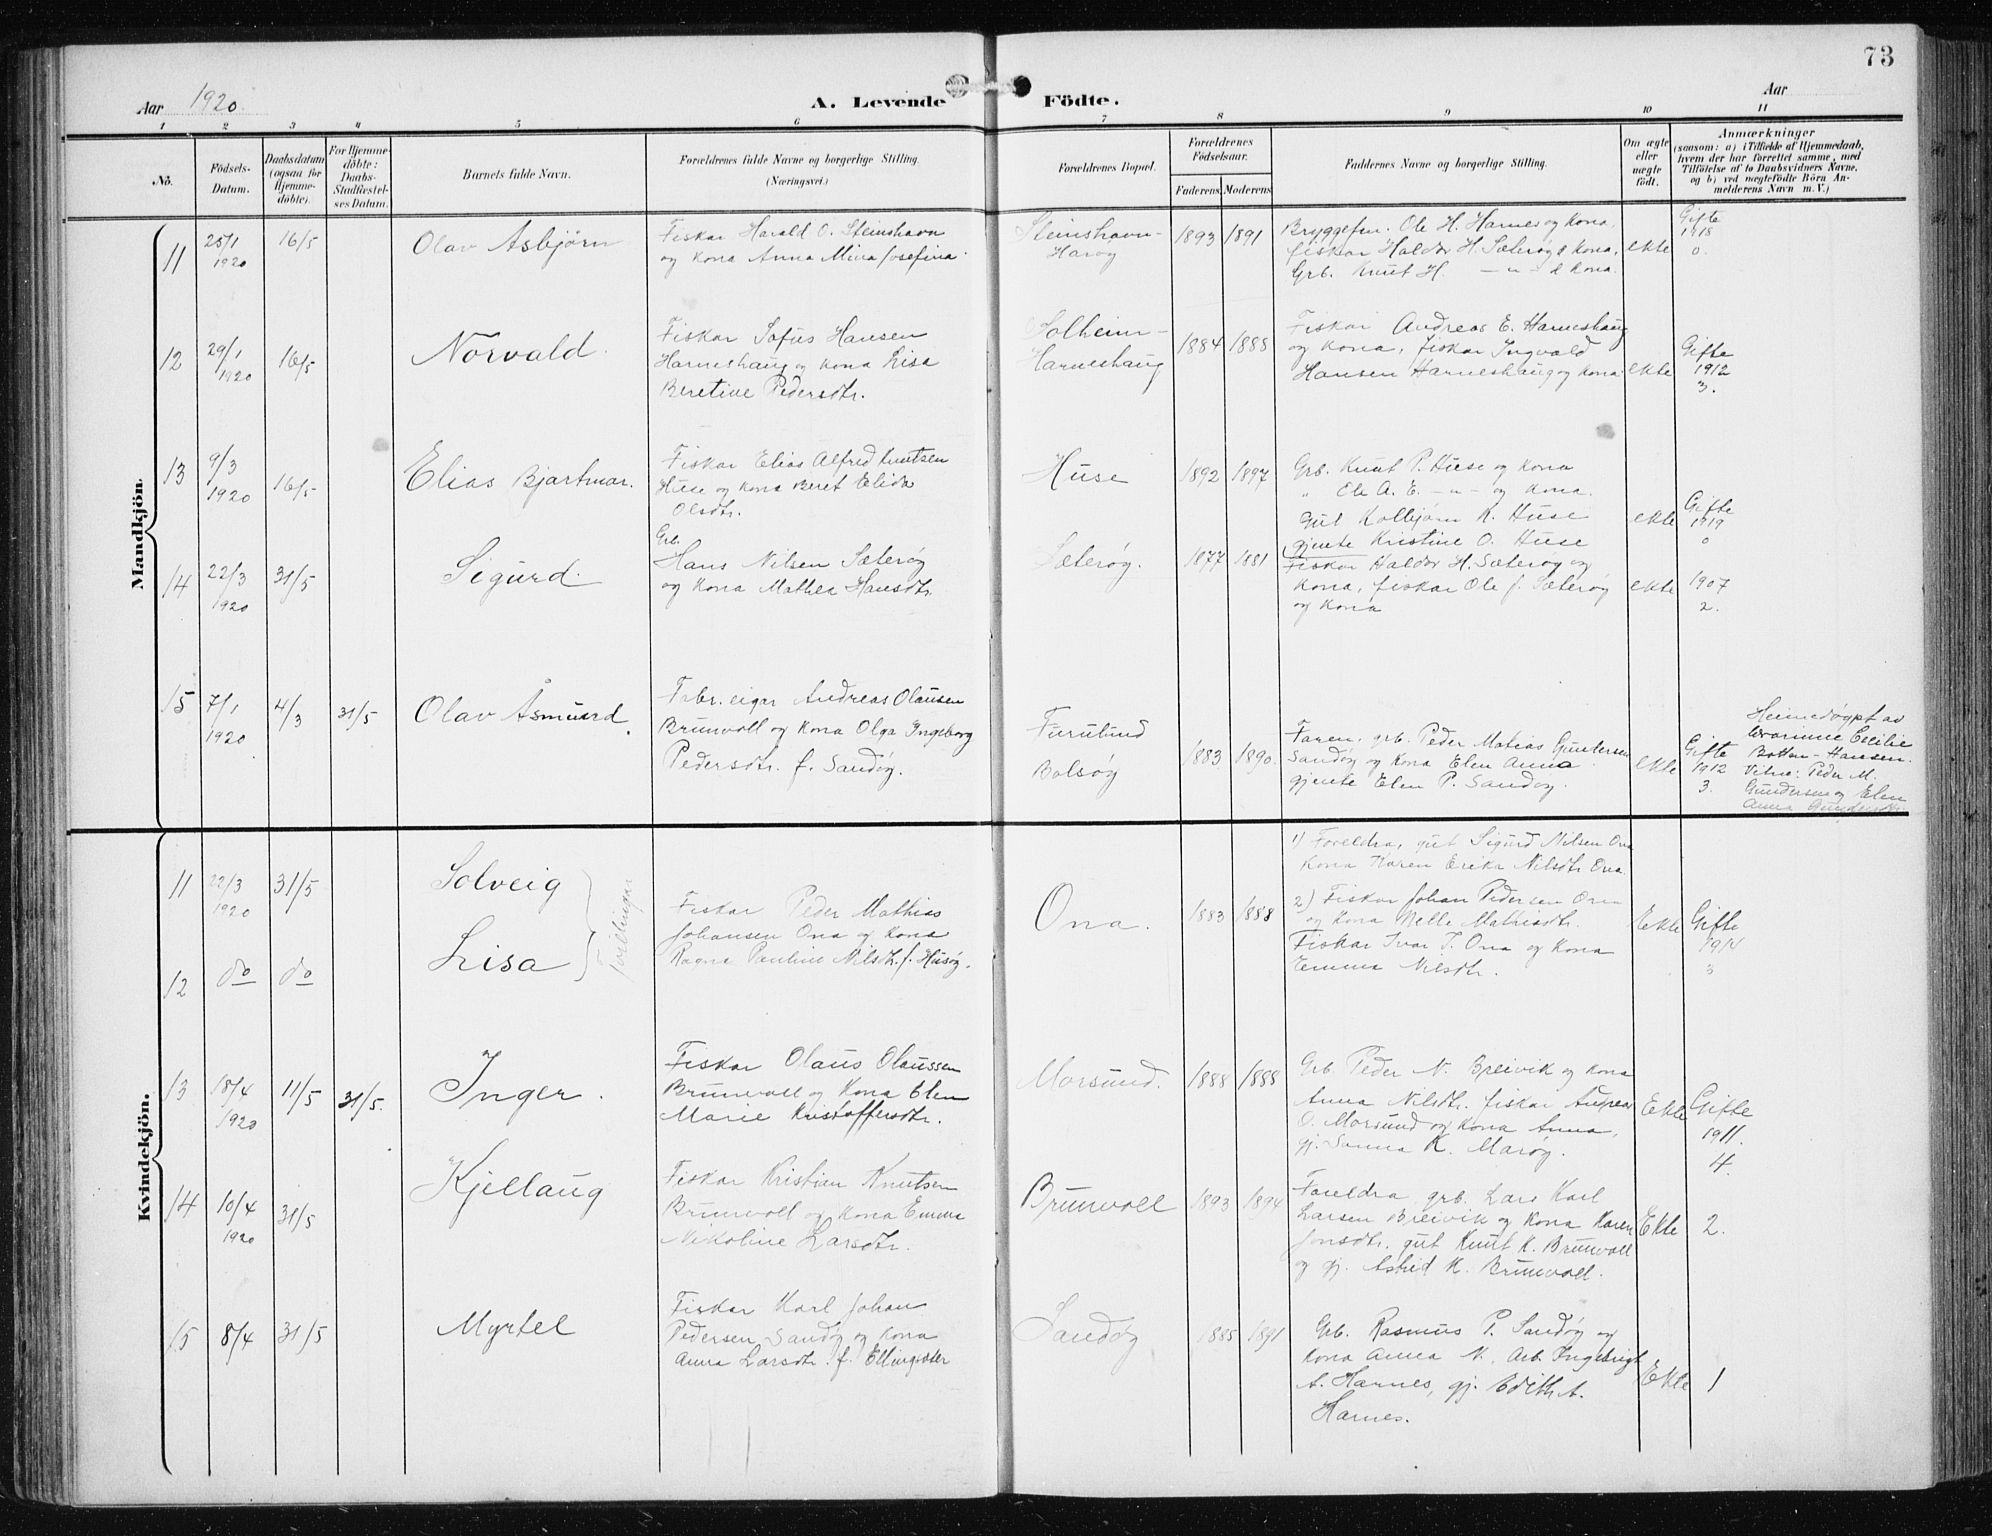 73
Aar 1920.
A. Levende Födte.
Aar
1 2 3 4 5 6 7 8 9 10 11
No.
Födsels-Datum.
Daabsdatum (ogsaa for Hjemme-döbte).
For Hjemme-döbte: Daabs-Stadfæstel-ses Datum.
Barnets fulde Navn.
Forældrenes fulde Navne og borgerlige Stilling.
(Næringsvei.)
Forældrenes Bopæl.
Forældrenes Födselsaar.
Faderens. Moderens.
Faddernes Navne og borgerlige Stilling.
Om ægte eller uægte födt.
Anmærkninger
(saasom: a) i Tilfælde af Hjemmedaab, hvem der har forrettet samme, med Tilföielse af to Daabsvidners Navne, og b) ved uægtefödte Börn An-melderens Navn m. V.)
Mandkjön.
11 25/1 1920 16/5 Olav Asbjørn
Fiskar Harald O. Steinshavn
og kona Anna Mina Josefina.
Steinshavn-
Harøy
1893 1891
Bryggefm. Ole H. Harnes og kona,
fiskar Haldor H. Sæterøy & kona,
Grb. Knut H. — " — & kona.
ekte
Gifte
1918
0.
12 29/1 1920 16/5 Norvald.
Fiskar Sofus Hansen
Harneshaug og kona Lisa
Beretine Pedersdtr.
Solheim-
Harneshaug
1884 1888
Fiskar Andreas E. Harneshaug
og kona, fiskar Ingvald
Hansen Harneshaug og kona
ekte
Gifte
1912
3.
13 9/3 1920 16/5 Elias Bjartmar.
Fiskar Elias Alfred Knutsen
Huse og kona Beret Elida
Olsdtr.
Huse
1892 1897
Grb. Knut P. Huse og kona
" Ole A. E. — " — og kona.
Gut Kolbjørn K. Huse
gjente Kristine O. Huse
ekte
Gifte
1919
0
14 22/3 1920 31/5 Sigurd.
Grb.
Hans Nilsen Sæterøy
og kona Mathea Hansdtr.
Sæterøy.
1877 1881
Fiskar Haldor H. Sæterøy og
kona, fiskar Ole J. Sæterøy
og kona
ekte
1907
2.
15 7/1 1920 4/3 31/5 Olav Åsmund.
Fabr.eigar Andreas Olausen
Brunvoll og kona Olga Ingeborg
Pedersdtr. f. Sandøy.
Furulund
Bolsøy
1883 1890.
Faren, grb. Peder Matias Gundersen
Sandøy og kona Elen Anna
gjente Elen P. Sandøy.
ekte
Gifte
1912
3.
Heimedøypt av
Cecilie
Botten-Hansen.
Vitne: Peder M.
Gundersen og Elen
Anna Gundersen
Kvindekjön.
11 22/3 1920 31/5 Solveig
Tvillingar
12 do do Lisa
Fiskar Peder Mathias
Johansen Ona og kona
Ragna Pauline Nilsdtr. f. Husøy.
Ona.
1883 1888
1) Foreldra, gut Sigurd Nilsen Ona
kona Karen Erika Nilsdtr Ona.
2) Fiskar Johan Pedersen Ona
og kona Nelle Mathisdtr.
Fiskar Ivar J. Ona og kona
Emma Nilsdtr.
Ekte
Gifte
1914
3
13 18/4 1920 11/5 31/5. Inger.
Fiskar Olaus Olaussen
Brunvoll og kona Elen
Marie Kristoffersdtr.
Morsund.
1888 1888
Grb. Peder N. Breivik og kona
Anna Nilsdtr. fiskar Andreas
O. Morsund og kona Anna,
gj. Sanna K. Marøy.
Ekte
Gifte
1911.
4.
14 10/4 1920 31/5 Kjellaug
Fiskar Kristian Knutsen
Brunvoll og kona Emma
Nikoline Larsdtr.
Brunvoll
1893 1894
Foreldra, grb. Lars Karl
Larsen Breivik og kona Karen
Jonsdtr. gut Knut K. Brunvoll
og gj. Astrid K. Brunvoll.
Ekte
2.
15 8/4 31/5 Myrtel
Fiskar Karl Johan
Pedersen Sandøy og kona
Anna Larsdtr. f. Ellingsæter
Sandøy
1885 1891
Grb. Rasmus P. Sandøy og
kona Anna N. Arb. Ingebrigt
A. Harnes, gj. Edith A.
Harnes.
Ekte
1